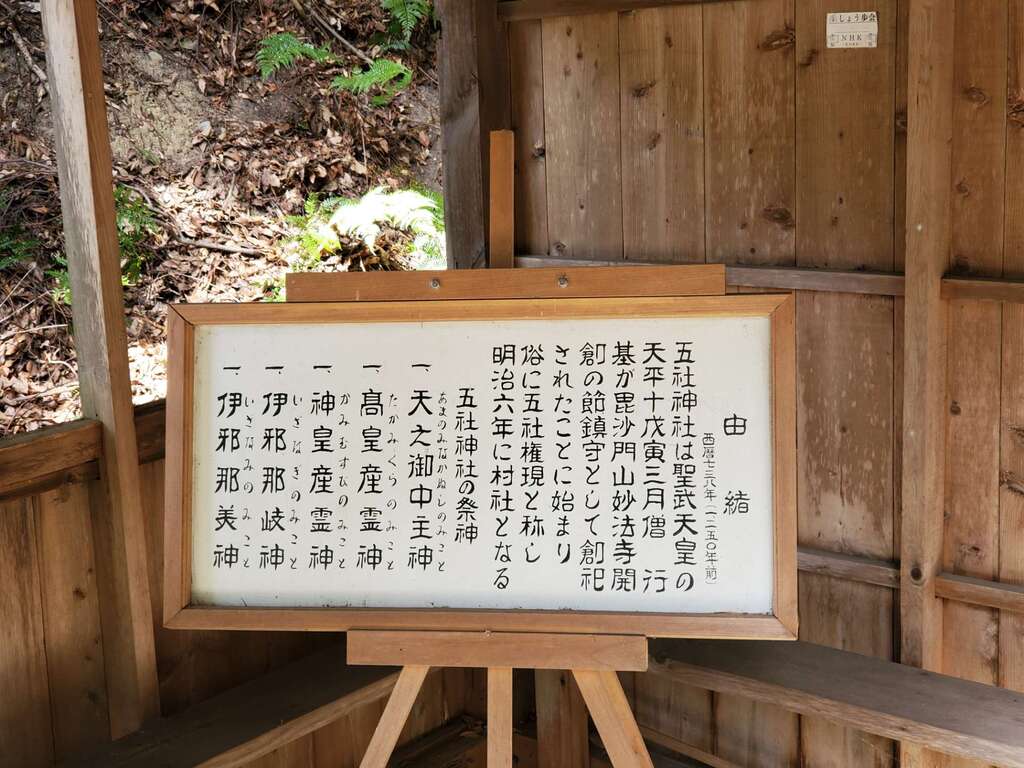 由緒
西暦七三八年(一二五〇年前)
五社神社は聖武天皇の
天平十戊寅三月僧 行
基が毘沙門山妙法寺開
創の節鎮守として創祀
されたことに始まり
俗に五社権現と称し
明治六年に村社となる
五社神社の祭神
あまのみなかぬしのみこと
一、天之御中主神
たかみくらのみこと
一、高皇産霊神
かみむすびのみこと
一、神皇産霊神
いざなぎのみこと
一、伊邪那岐神
いざなみのみこと
一、伊邪那美神
しょう歩会
NHK